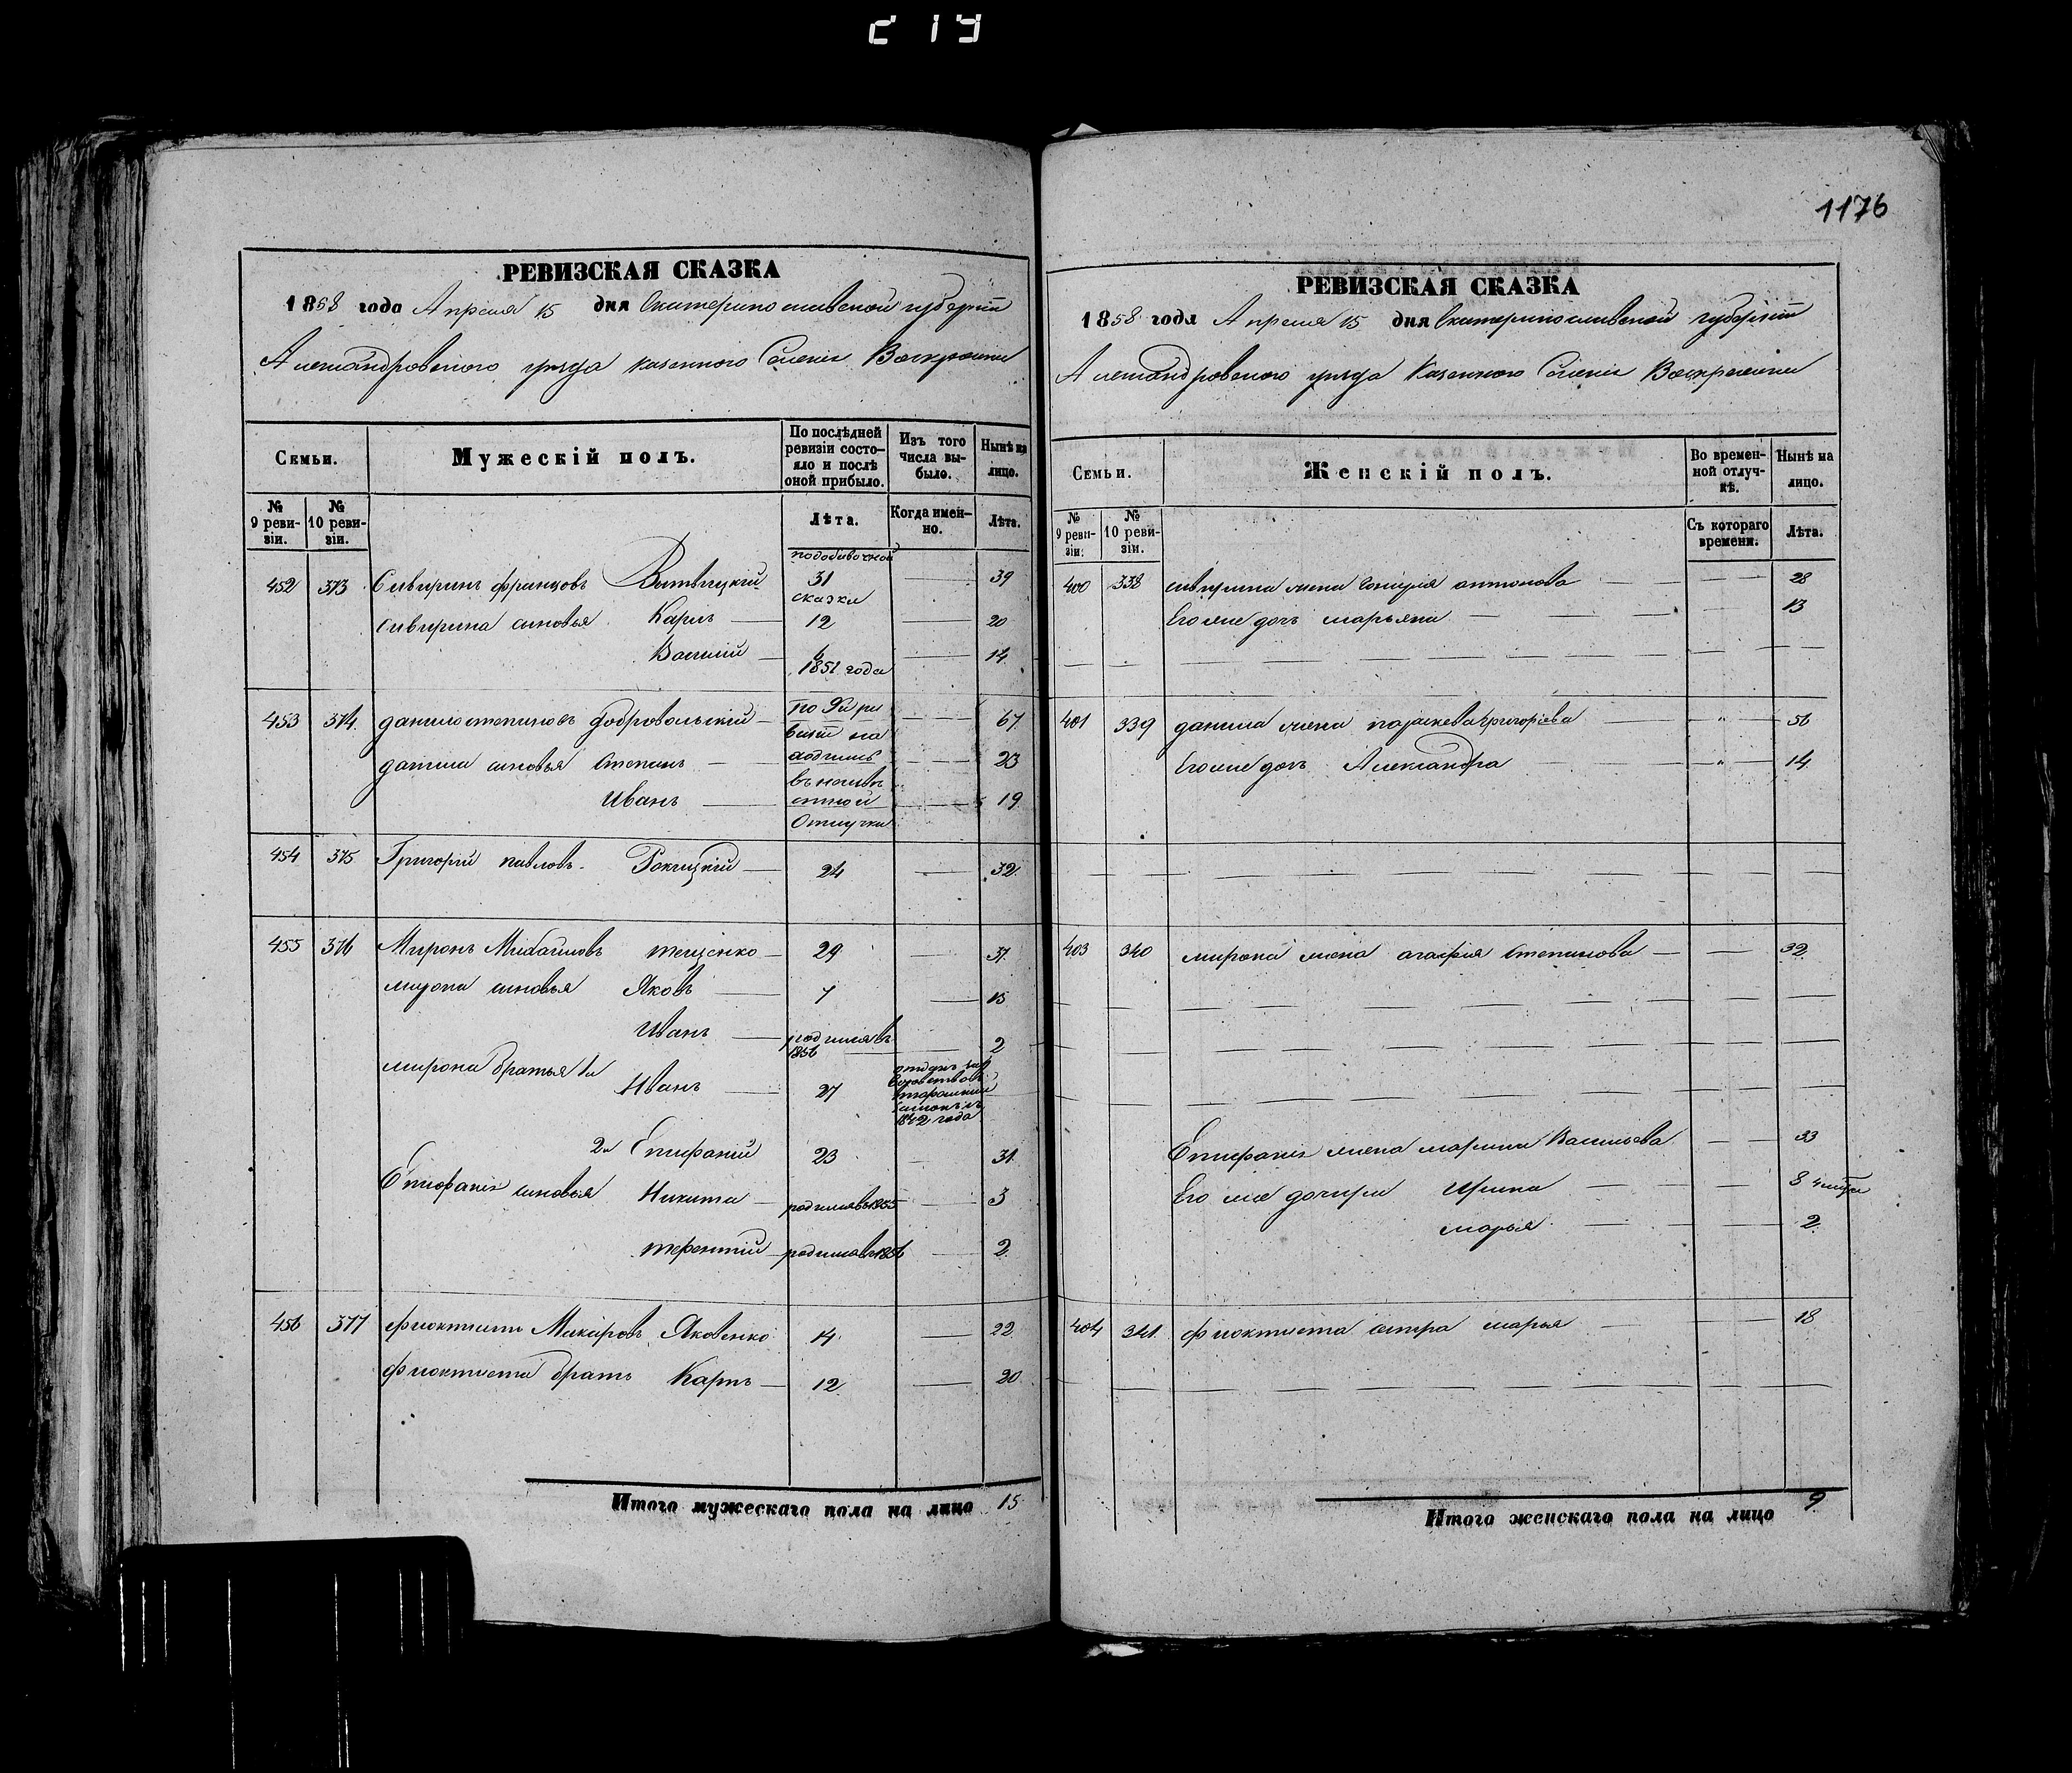 219
1176
РЕВИЗСКАЯ СКАЗКА
1858 года Апреля 15 дня Екатеринославской губернiи
Александровскаго уезда казенного Селенiя Воскресенки
Семьи. Мужескiй полъ. По послѣдней ревизiи состо-яло и послѣ оной прибыло. Изъ того числа вы-было. Нынѣ на лицо.
№ 9 реви-зiи. № 10 реви-зiи. Лѣта. Когда имен-но. Лѣта.
452 373 Сивиринъ францовъ 31 39
сказки
сивирина сыновья Карлъ 12 20
Василий 6 14
1851 года
453 374 данило степановъ добровольскiй по 9й ре 67
данила сыновья Степанъ 23
Иванъ 19
отлучки
454 375 Григорiй павловъ Рокицкiй 24 32
455 376 Миронъ Михайловъ тещенко 29 37
мирона сыновья Яковъ 7 15
Иванъ родился въ 1856 2
мирона братья 1й Иванъ 27
1842 года
2й Епифанiй 23 31
Епифанiя сыновья Никита родился въ 1855 3
терентiй родился въ 1856 2
456 377 фиоктистъ Макаровъ Яковенко 14 22
фиоктиста братъ Карпъ 12 20
Итого мужескаго пола на лицо 15
РЕВИЗСКАЯ СКАЗКА
1858 года Апреля 15 дня Екатеринославской губернiи
Александровскаго уезда Казенного Селенiя Воскресенки
Семьи. Женскiй полъ. Во времен-ной отлуч-кѣ. Нынѣ на лицо.
№ 9 реви-зiи. № 10 реви-зiи. Съ котораго времени. Лѣта.
400 338 сивирина жена антонова 28
Его же дочь марьяна 13
401 339 данила жена параскева григорiева " 56
Его же дочь Александра " 14
403 340 мирона жена агафiя Степанова 32
Епифанiя жена марина Васильева 33
Его же дочери Ирина 8
марья 2
404 341 фиоктиста сестра марья 18
Итого женскаго пола на лицо 9